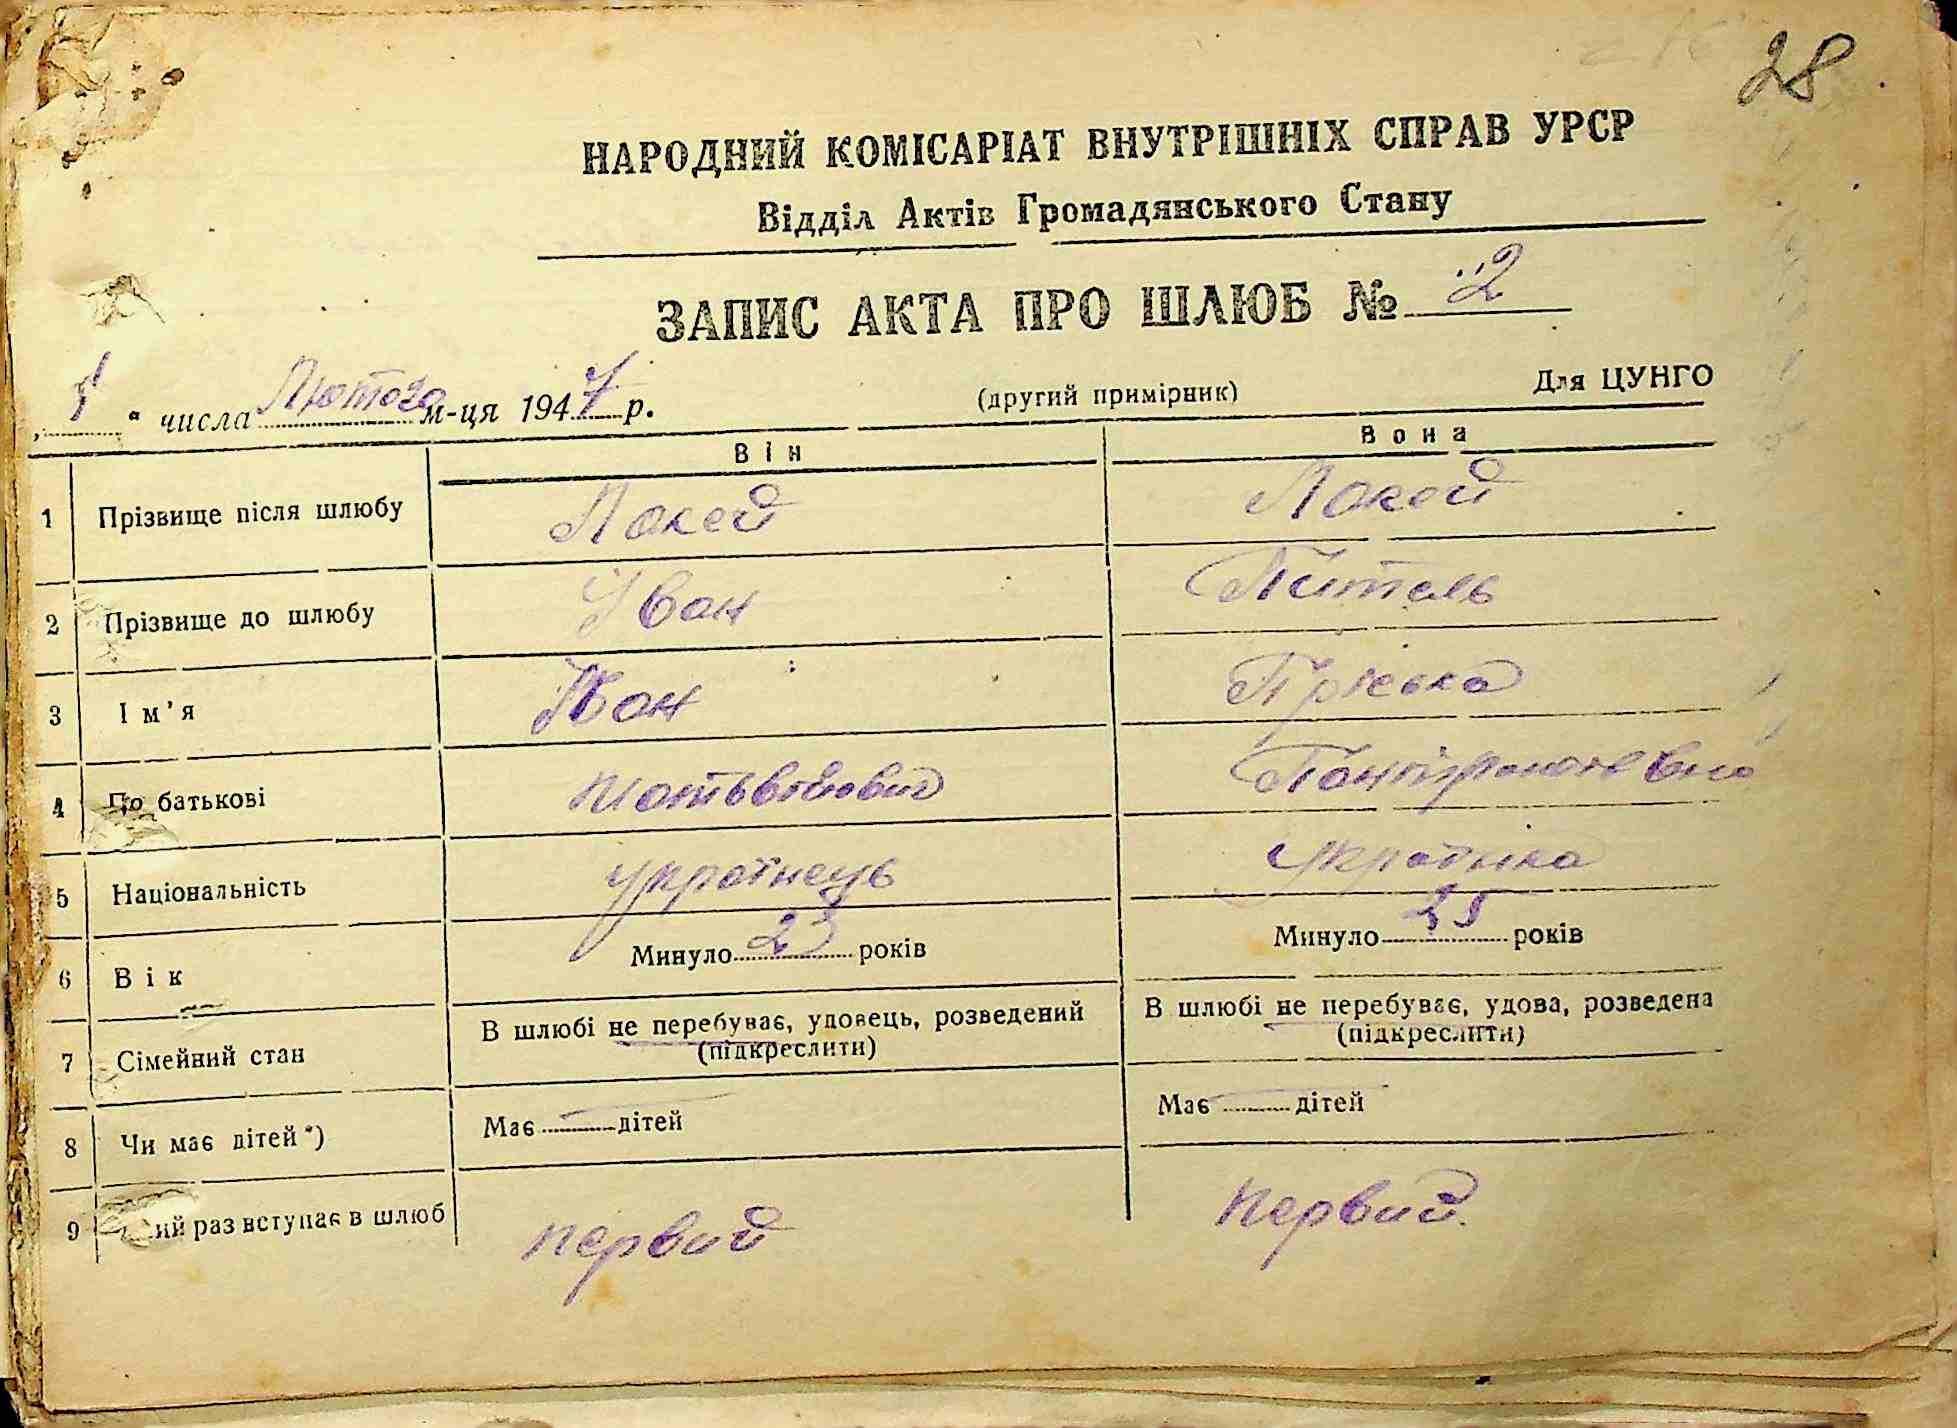 28
НАРОДНИЙ КОМІСАРІАТ ВНУТРІШНІХ СПРАВ УРСР
Відділ Актів Громадянського Стану
ЗАПИС АКТА ПРО ШЛЮБ № 2
" числа Лютого м-ця 1947 р. (другий примірник) Для ЦУНГО
Він Вона
1 Прізвище після шлюбу Локей Локей
2 Прізвище до шлюбу Іван Питель
3 Ім'я Іван Пріська
4 По батькові Матьвійович
5 Національність українець Українка
6 Вік Минуло 23 років Минуло 25 років
7 Сімейний стан В шлюбі не перебуває, удовець, розведений (підкреслити) В шлюбі не перебуває, удова, розведена (підкреслити)
8 Чи має дітей*) Має — дітей Має — дітей
9 ий раз вступає в шлюб первий Первий